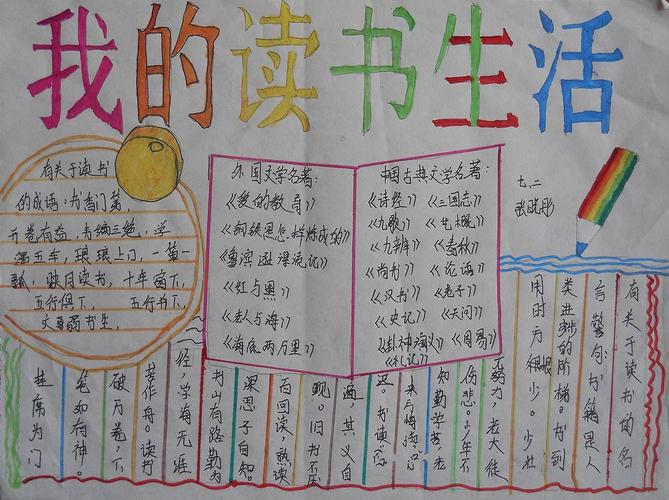 我的读书生活
有关于读书
的成语：书香门第，
开卷有益，韦编三绝，学
富五车，琅琅上门，一箪一
瓢，映月读书，十年窗下，
五行俱下，五行书下，
文弱书生，
外国文学名著：
《爱的教育》
《钢铁是怎样炼成的》
《鲁滨逊漂流记》
《红与黑》
《老人与海》
《海底两万里》
中国古典文学名著：
《诗经》《三国志》
《九歌》《艺概》
《九辩》《春秋》
《尚书》《论语》
《汉书》《老子》
《史记》《天问》
《封神演义》《周易》
《礼记》
七、二
有关于读书的名
言警句：书籍是人
类进步的阶梯。书到
用时方恨很少。少壮
不努力，老大徒
伤悲。少年不
知勤学苦，老
来方悔读心
迟。书读百
遍，其义自
现。旧书不厌
百回读，熟读
深思子自知。
书山有路勤为
经，学海无涯
苦作舟。读书
破万卷，下
笔如有神。